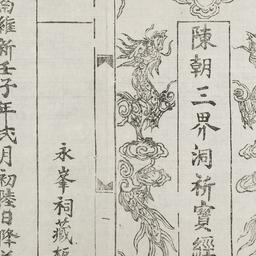 陳朝三界洞祈寳經
永峯祠藏板
維新壬子年弍月初陸日降